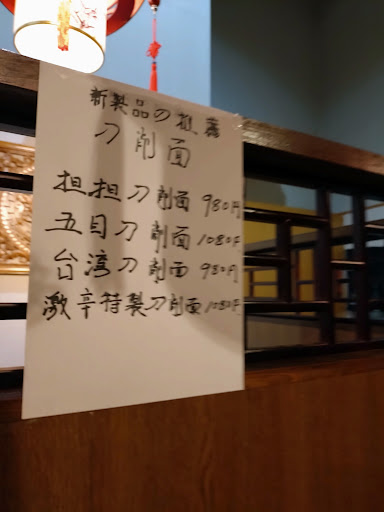 新製品の推薦
刀削面
担担刀削面 980円
五目刀削面 1080円
台湾刀削面 980円
激辛特製刀削面 1080円